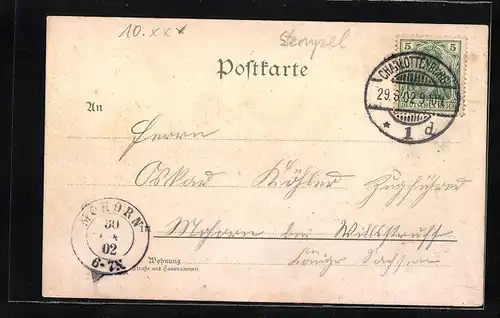 10.xxx
Stempel
Postkarte
5 5
CHARLOTTENBURG
29.3.02.9-10N
* 1 d
An
Herrn
Oskar Köhler Zugführer
in
Mohorn bei Willsdruff
Königr. Sachsen
MOHORN
30
02
6-7N
Wohnung
(Straße und Hausnummer)